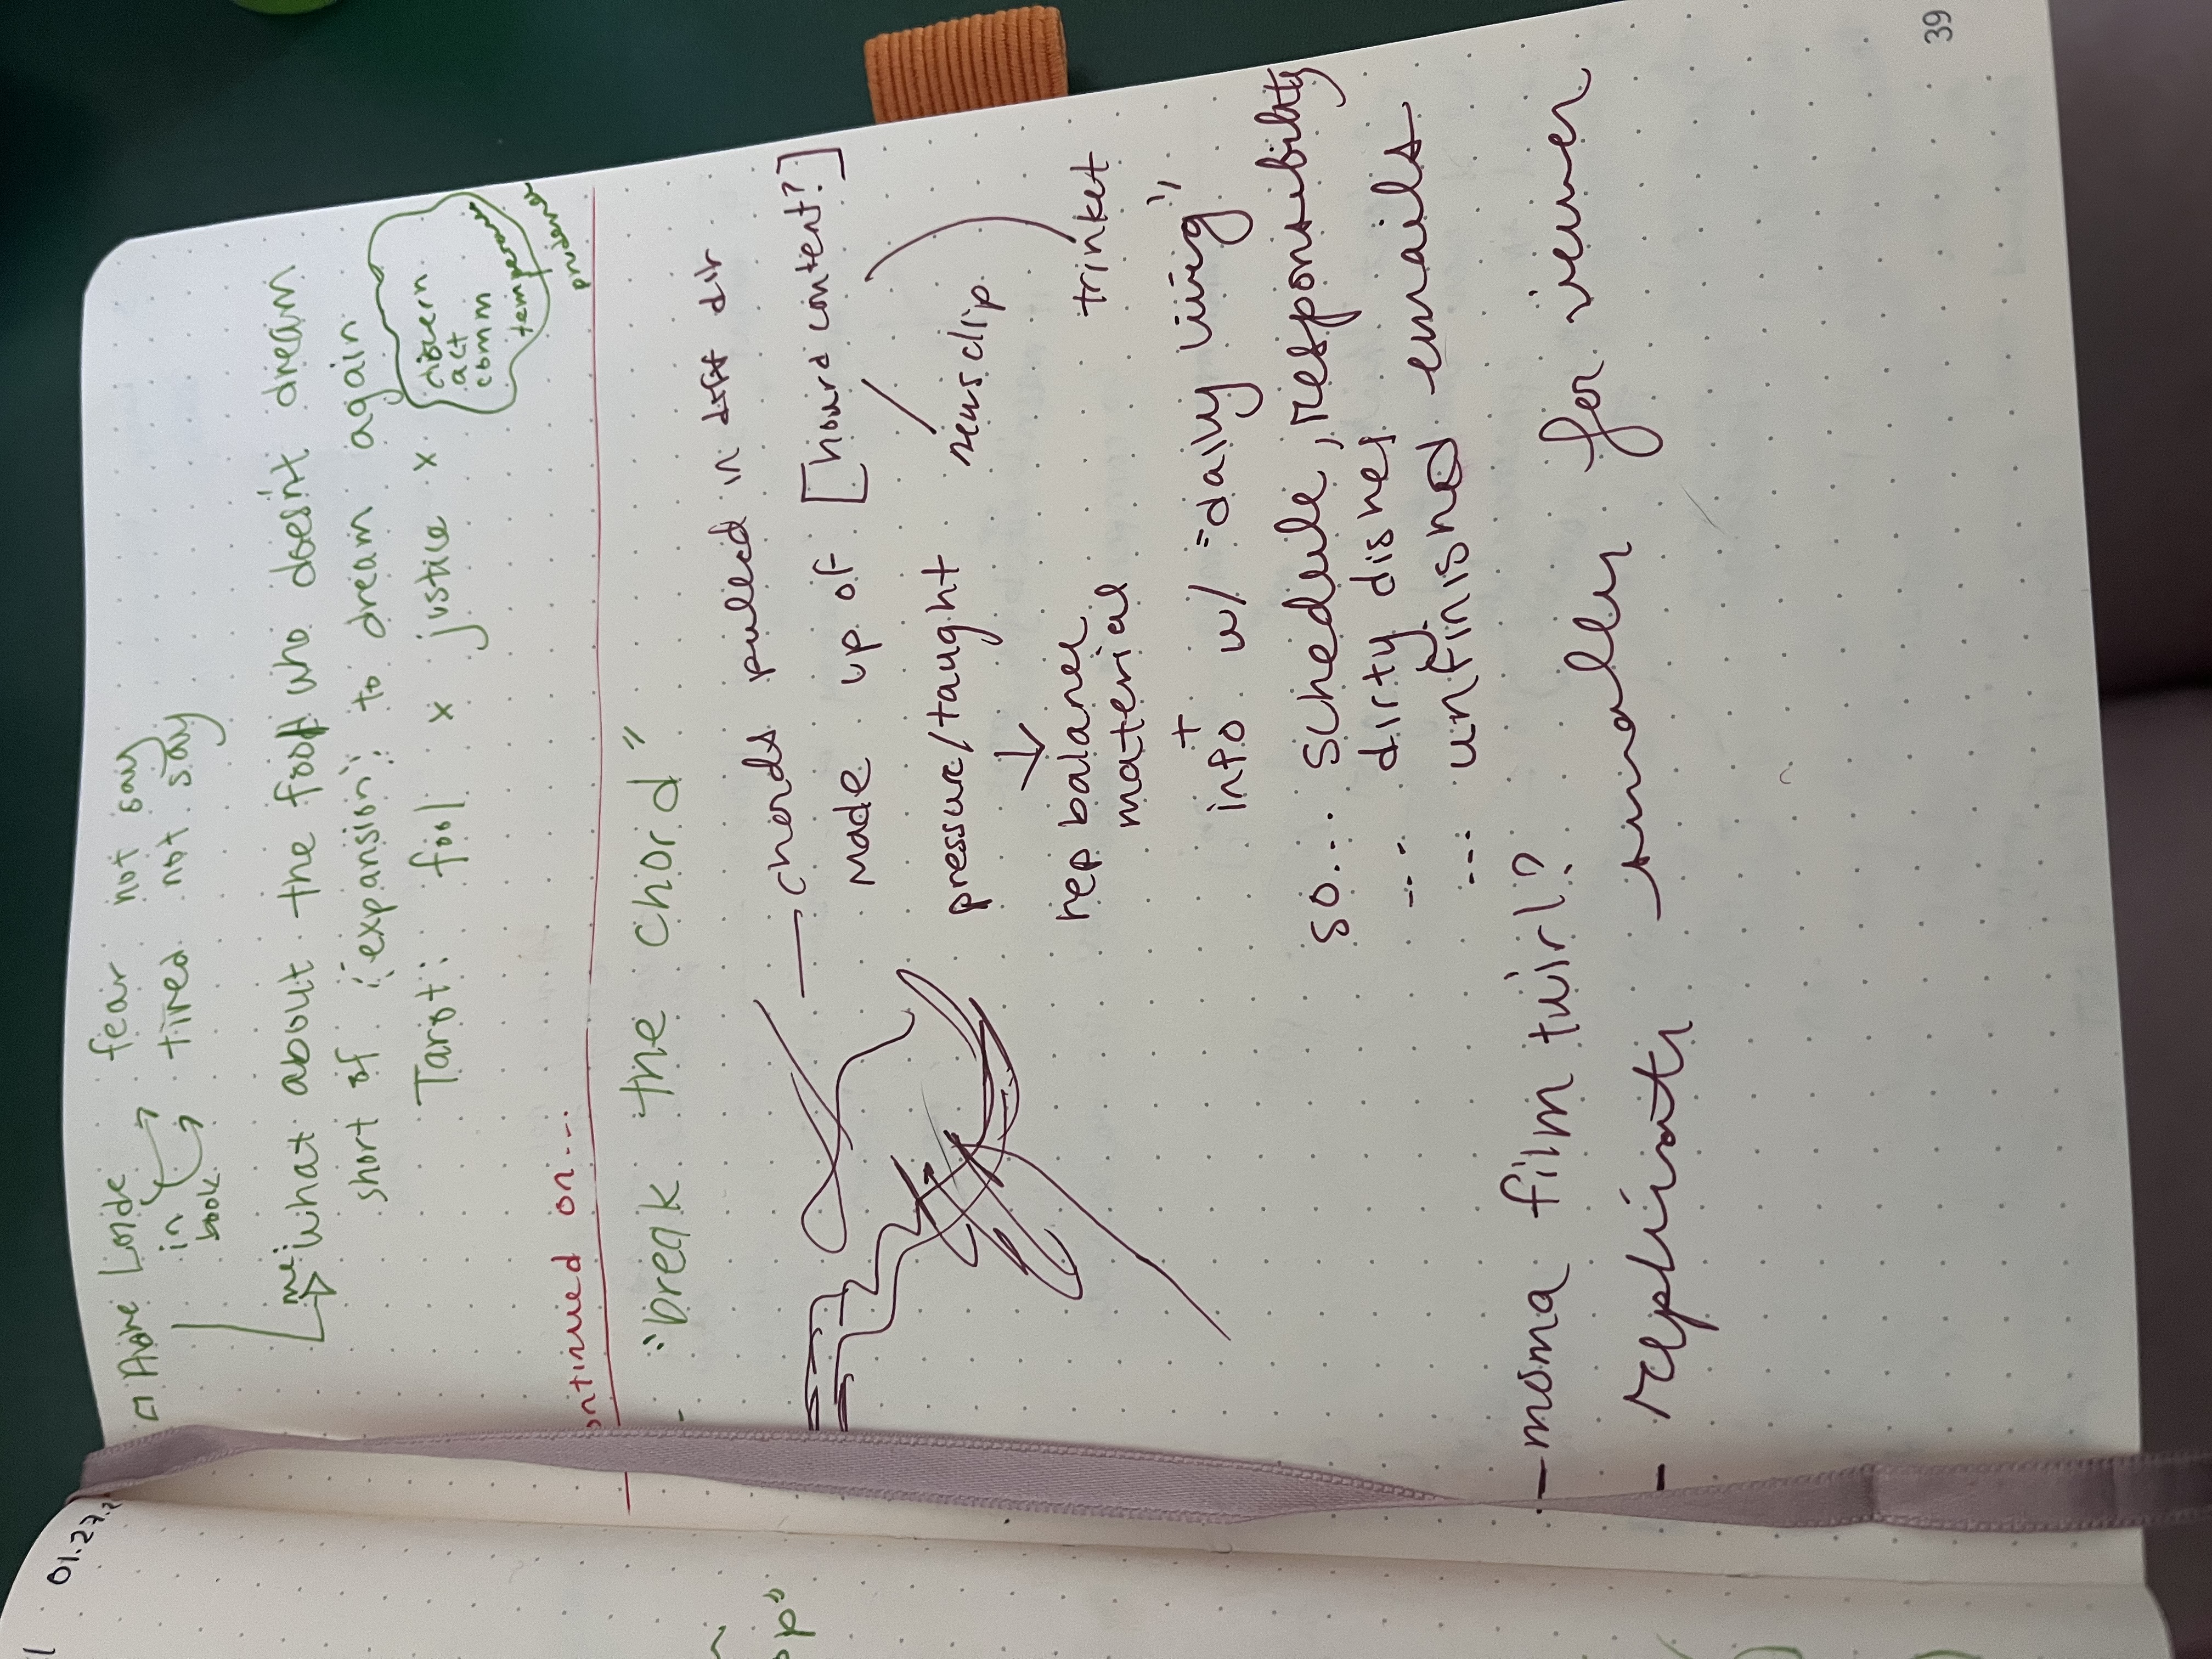 01.27.2
Audre Lorde
in book
fear not say
tired not say
me: what about the fool who doesn't dream
short of "expansion" to dream again
Tarot: fool x justice x
discern
act
comm
temperance
prudence
continued on...
- "break the chord"
— chords pulled in diff dir
made up of [hoard content?]
pressure/taught
newsclip
↓
rep balance
trinket
material
+
info w/ "daily living"
so... schedule, responsibility
... dirty dishes
... unfinished emails
- moma film twirl?
- replicate smaller for viewer
39
op"